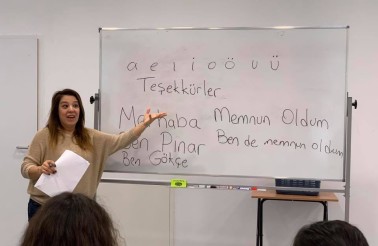 a e ı i o ö u ü
Teşekkürler
Merhaba
Ben Pınar
Ben Gökçe
Memnun Oldum
Ben de memnun oldum